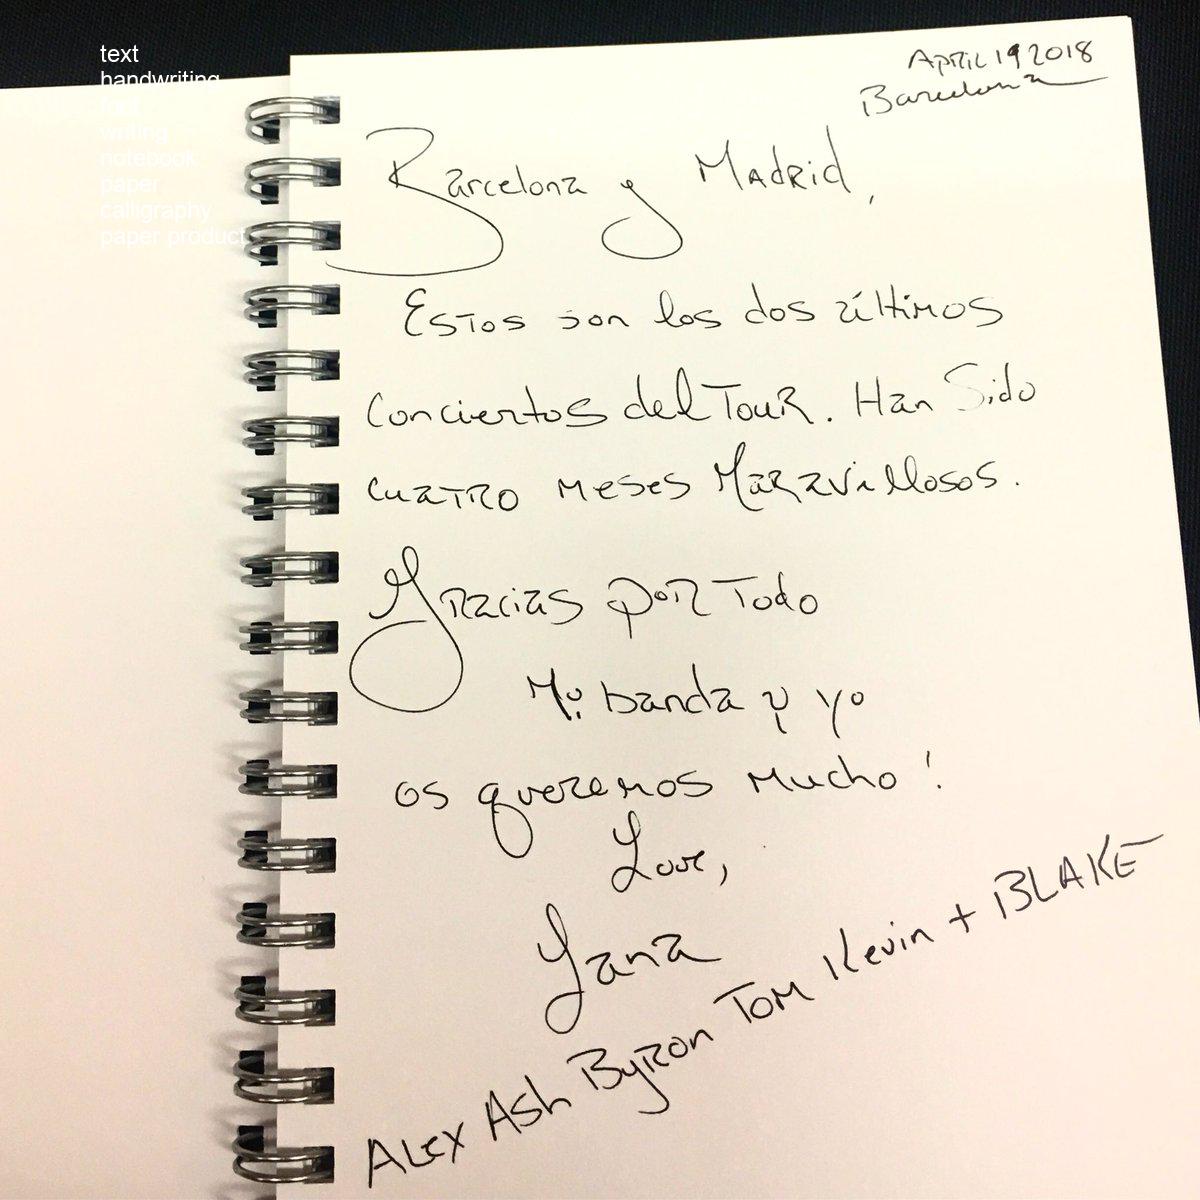 text
handwriting
font
writing
notebook
paper
calligraphy
paper product
APRIL 19 2018
Barcelona
Barcelona y Madrid,
Estos son los dos últimos
conciertos del Tour. Han Sido
cuatro meses Maravillosos.
Gracias por Todo
Mi banda y yo
os queremos mucho!
Love,
Lana
ALEX ASH BYRON TOM Kevin + BLAKE